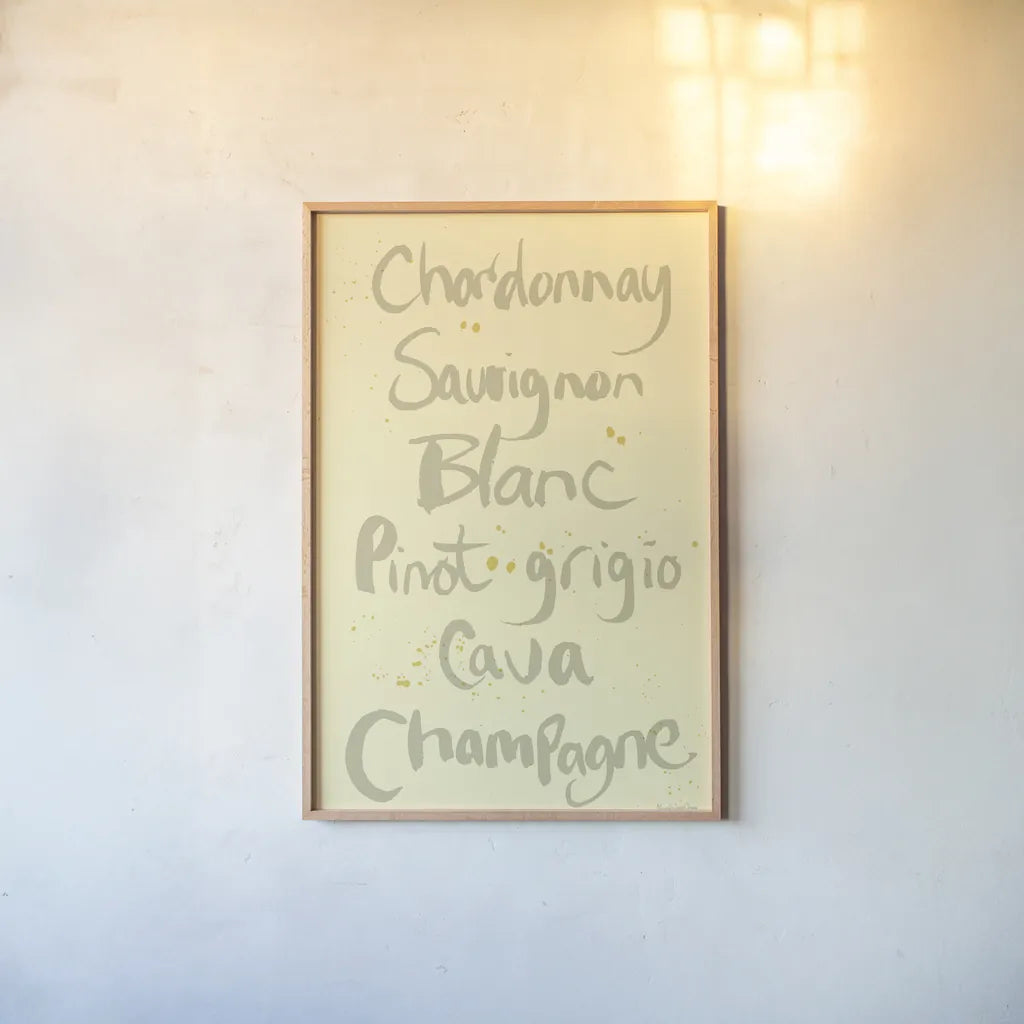 Chardonnay
Sauvignon
Blanc
Pinot grigio
Cava
Champagne